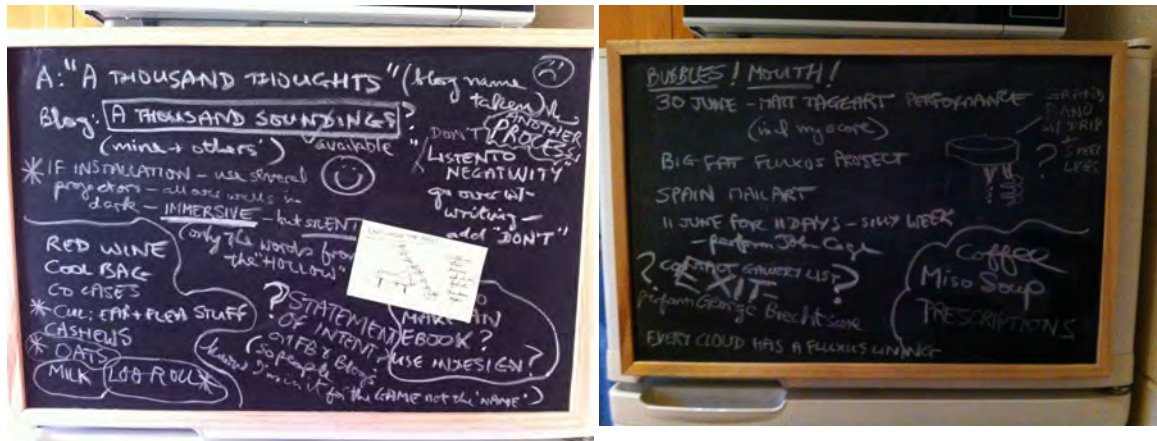 A: "A THOUSAND THOUGHTS" (blog name
taken)
Blog: A THOUSAND SOUNDINGS ?
(mine + others') available
ANOTHER
PROCESS
DON'T
"LISTEN TO
NEGATIVITY"
go over w/-
writing -
add "DON'T"
* IF INSTALLATION - use several
projectors - all over walls in
dark - IMMERSIVE - but SILENT
(only the words from
the "HOLLOW"
RED WINE
COOL BAG
CD CASES
* CUL: EAR + FLEA STUFF
CASHEWS
* OATS
MILK LOO ROLL *
? STATEMENT
OF INTENT
on FB + Blogs
(so people
know I'm in it for the GAME not the 'NAME')
MAKE AN
EBOOK?
USE INDESIGN?
BUBBLES! MOUTH!
30 JUNE - MATT TAGEART PERFORMANCE
(incl my score)
GRAND
PIANO
w/ DRIP
STEEL
LEGS
?
BIG FAT FLUXUS PROJECT
SPAIN MAIL ART
11 JUNE FOR 11 DAYS - SILLY WEEK
- perform John Cage
? CONTACT GALLERY LIST ?
EXIT
perform George Brecht score
EVERY CLOUD HAS A FLUXUS LINING
Coffee
Miso Soup
PRESCRIPTIONS